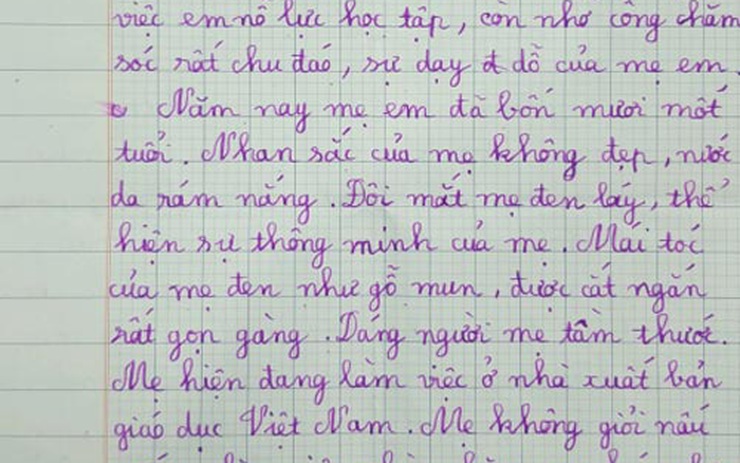 việc em nỗ lực học tập, còn nhờ công chăm
sóc rất chu đáo, sự dạy đ dỗ của mẹ em.
Năm nay mẹ em đã bốn mươi mốt
tuổi. Nhan sắc của mẹ không đẹp, nước
da rám nắng. Đôi mắt mẹ đen láy, thể
hiện sự thông minh của mẹ. Mái tóc
của mẹ đen như gỗ mun, được cắt ngắn
rất gọn gàng. Dáng người mẹ tầm thước.
Mẹ hiện đang làm việc ở nhà xuất bản
giáo dục Việt Nam. Mẹ không giỏi nấu